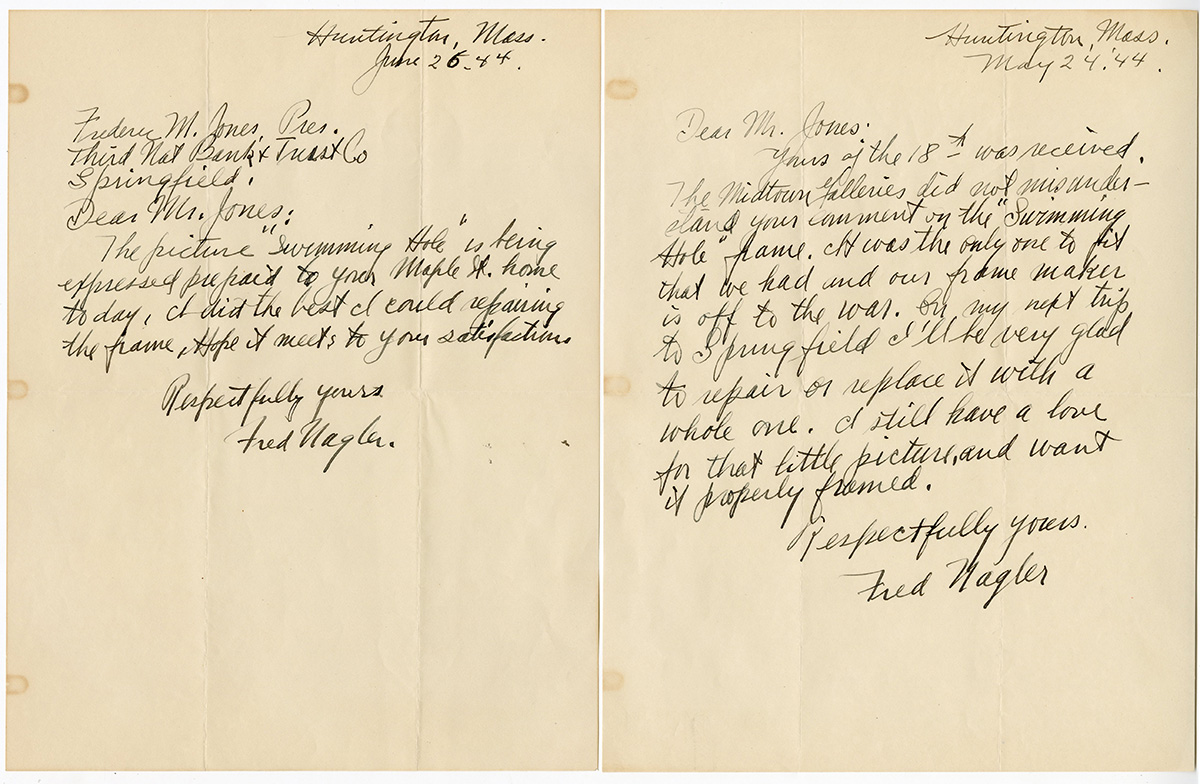 Huntington, Mass.
June 26-44.
Frederic M. Jones, Pres.
Third Nat Bank & Trust Co
Springfield.
Dear Mr. Jones:
The picture "Swimming Hole" is being
expressed prepaid to your Maple St. home
today, I did the best I could repairing
the frame, Hope it meets to your satisfaction
Respectfully yours
Fred Nagler.
Huntington, Mass.
May 24.'44.
Dear Mr. Jones:
Yours of the 18th was received.
The Midtown Galleries did not misunder-
stand your comment on the "Swimming
Hole" frame. It was the only one to fit
that we had and our frame maker
is off to the war. On my next trip
to Springfield I'll be very glad
to repair or replace it with a
whole one. I still have a love
for that little picture, and want
it properly framed.
Respectfully yours.
Fred Nagler